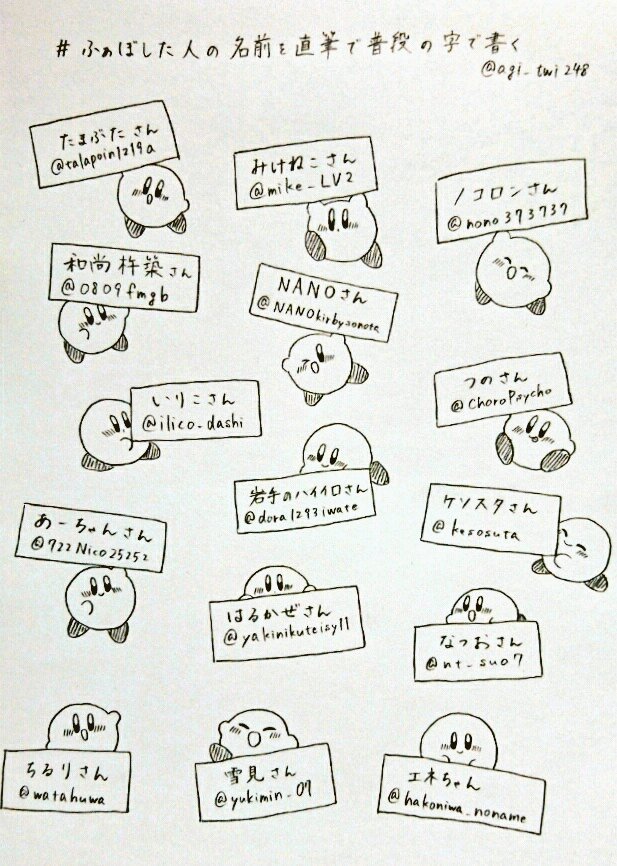 # ふぁぼした人の名前を直筆で普段の字で書く
@agi_twi248
たまぶたさん
@talapoin1219a
みけねこさん
@mike_LV2
ノコロンさん
@nono373737
和尚杵築さん
@0809fmgb
NANOさん
@NANOkirbysonota
いりこさん
@ilico_dashi
つのさん
@ChoroPsycho
岩手のハイイロさん
@dora1293iwate
ケソスタさん
@kesosuta
あーちゃんさん
@722Nico25252
はるかぜさん
@yakinikuteisy11
なつおさん
@nt_suo7
ちるりさん
@watahuwa
雪見さん
@yukimin_07
エネちゃん
@hakoniwa_noname